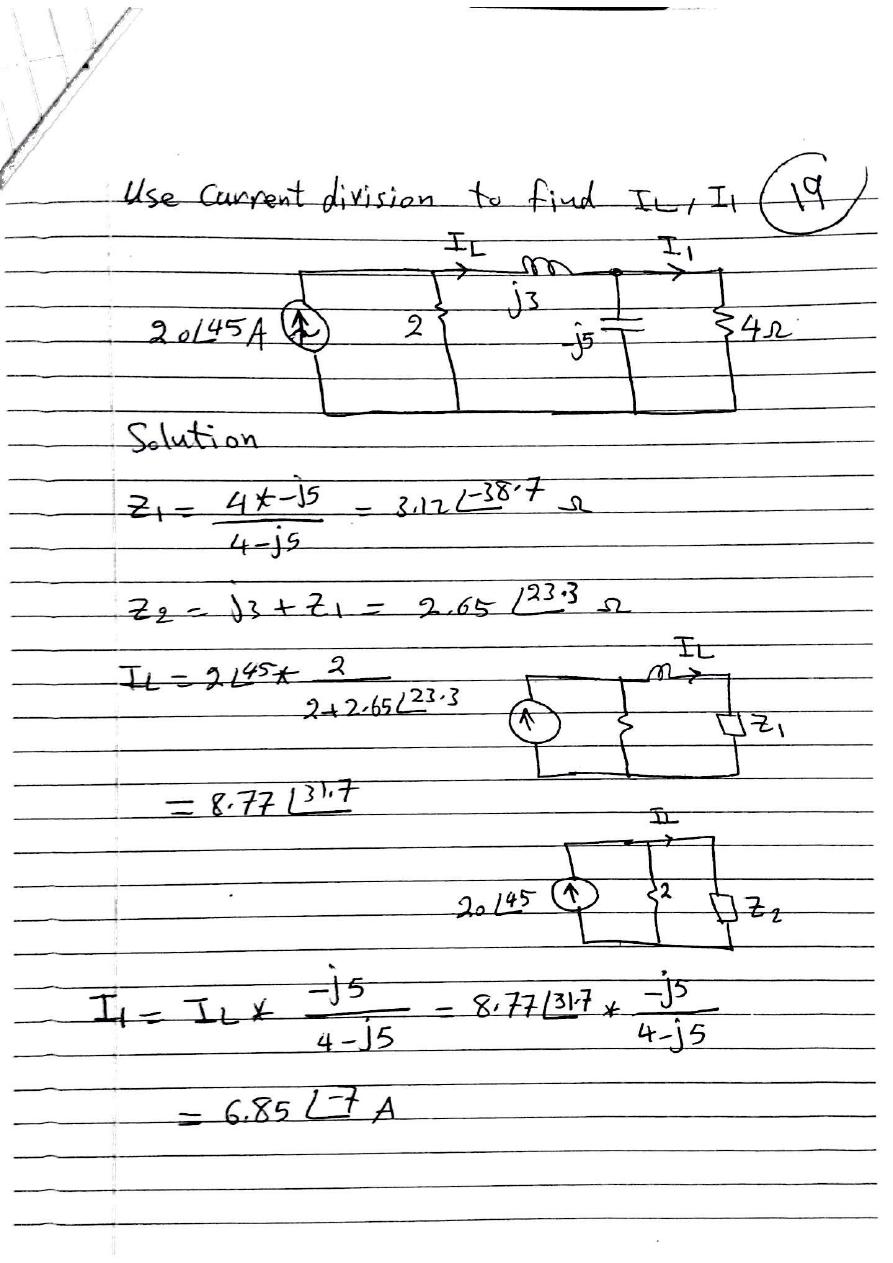 Use Current division to find IL, I1 19
IL I1
j3
20∠45 A 2 -j5 4Ω
Solution
Z1 = 4*-j5 / 4-j5 = 3.12∠-38.7 Ω
Z2 = j3 + Z1 = 2.65∠23.3 Ω
IL
IL = 2∠45 * 2 / 2+2.65∠23.3
Z1
= 8.77∠31.7
IL
20∠45 2 Z2
I1 = IL * -j5 / 4-j5 = 8.77∠31.7 * -j5 / 4-j5
= 6.85∠-7 A